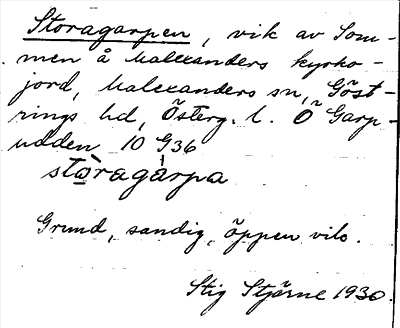 Storagarpen, vik av Som-
men å Malexanders kyrko-
jord, Malexanders sn, Göst-
rings hd, Österg. l. Ö Garp-
udden 10 G36
sto̲ragàrpa
Grund, sandig, öppen vik.
Stig Stjärne 1930.